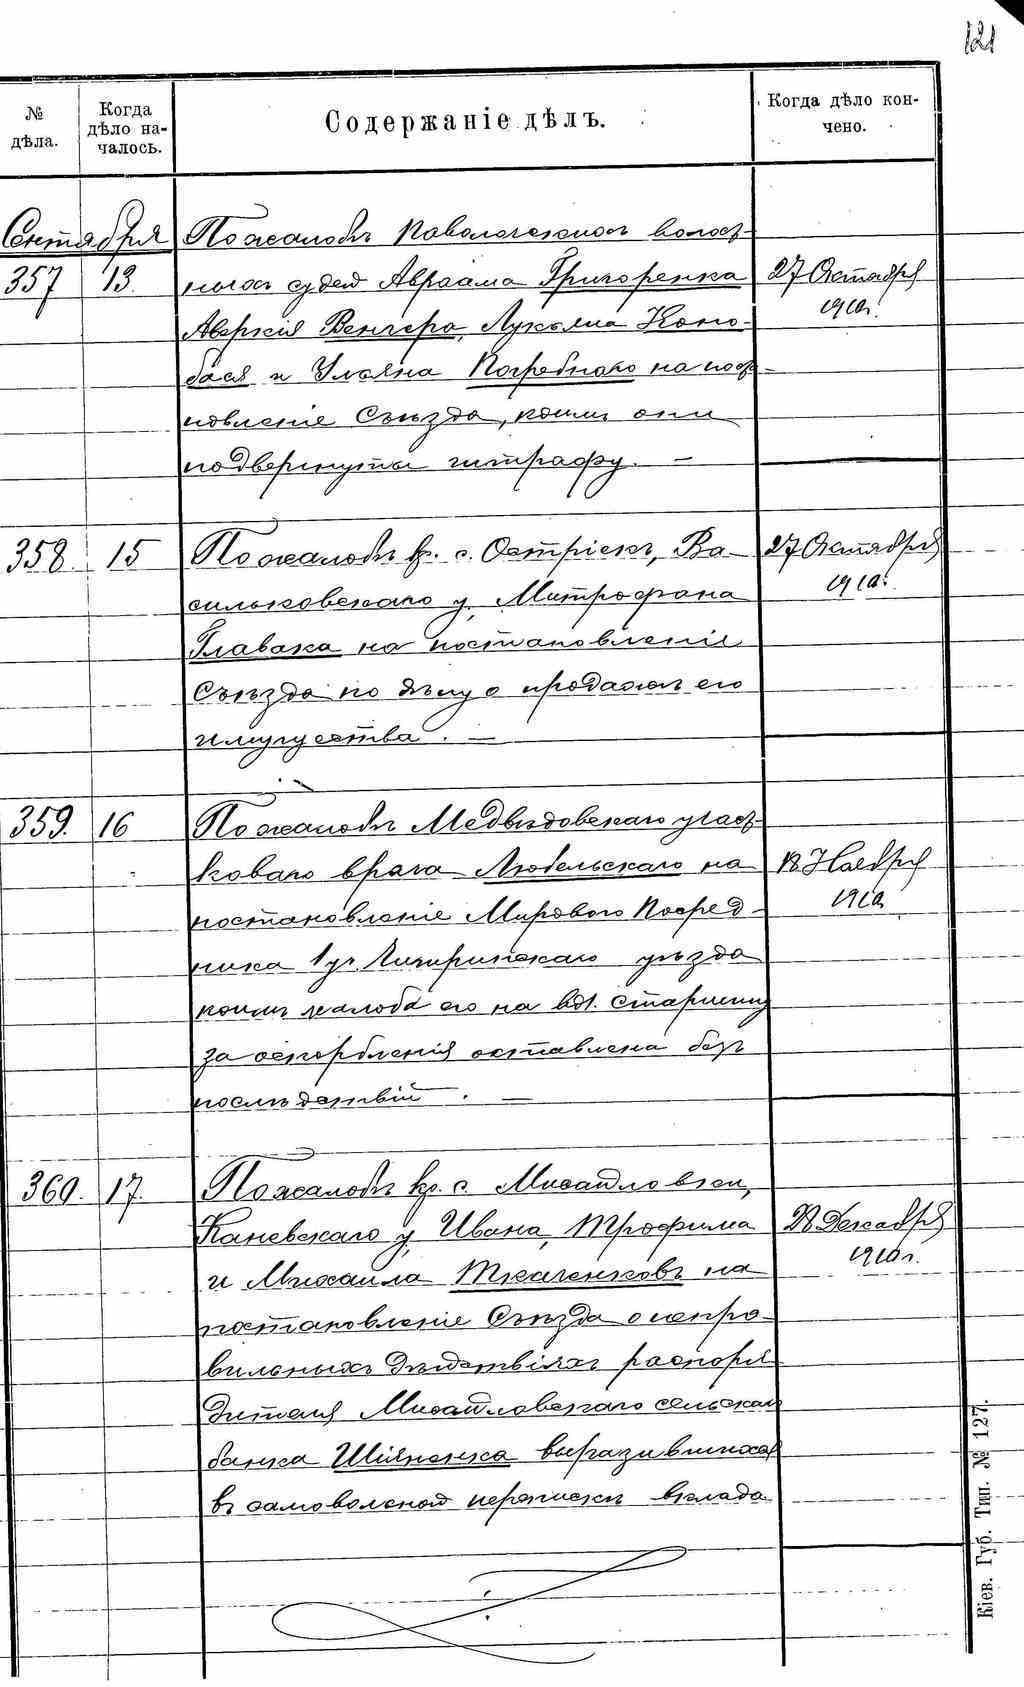 121
№ дѣла.
Когда дѣло на-чалось.
Содержаніе дѣлъ.
Когда дѣло кон-чено.
Сентября
По жалобѣ Паволочскихъ волост-
357 13. ныхъ судей Авраама Григоренка 27 Октября
Аверкія Венгера, Лукьяна Коно- 1910г.
бася и Ульяна Погребнаго на поста-
новленіе Съѣзда, коимъ они
подвергнуты штрафу. —
358. 15 По жалобѣ кр. с. Острiекъ, Ва- 27 Октября
сильковскаго у. Митрофана 1910г.
Главака на постановленіе
Съѣзда по дѣлу о продажѣ его
имущества. —
359. 16 По жалобѣ Медвѣдовскаго участ-
коваго врача Любельскаго на 18 Ноября
постановленіе Мирового Посред- 1910
ника 1 уч. Чигиринскаго уѣзда
коимъ жалоба его на вол. старшину
за оскорбленія оставлена безъ
послѣдствій. —
360. 17. По жалобѣ кр. с. Михайловки,
Каневскаго у. Ивана, Трофима 28 Декабря
и Михаила Ткаченковъ на 1910г.
постановленіе Съѣзда о непра-
вильныхъ дѣйствіяхъ распоря-
дителя Михайловскаго сельскаго
банка Шіяненка выразившихся
въ самовольной перепискѣ вклада
Кіев. Губ. Тип. № 127.